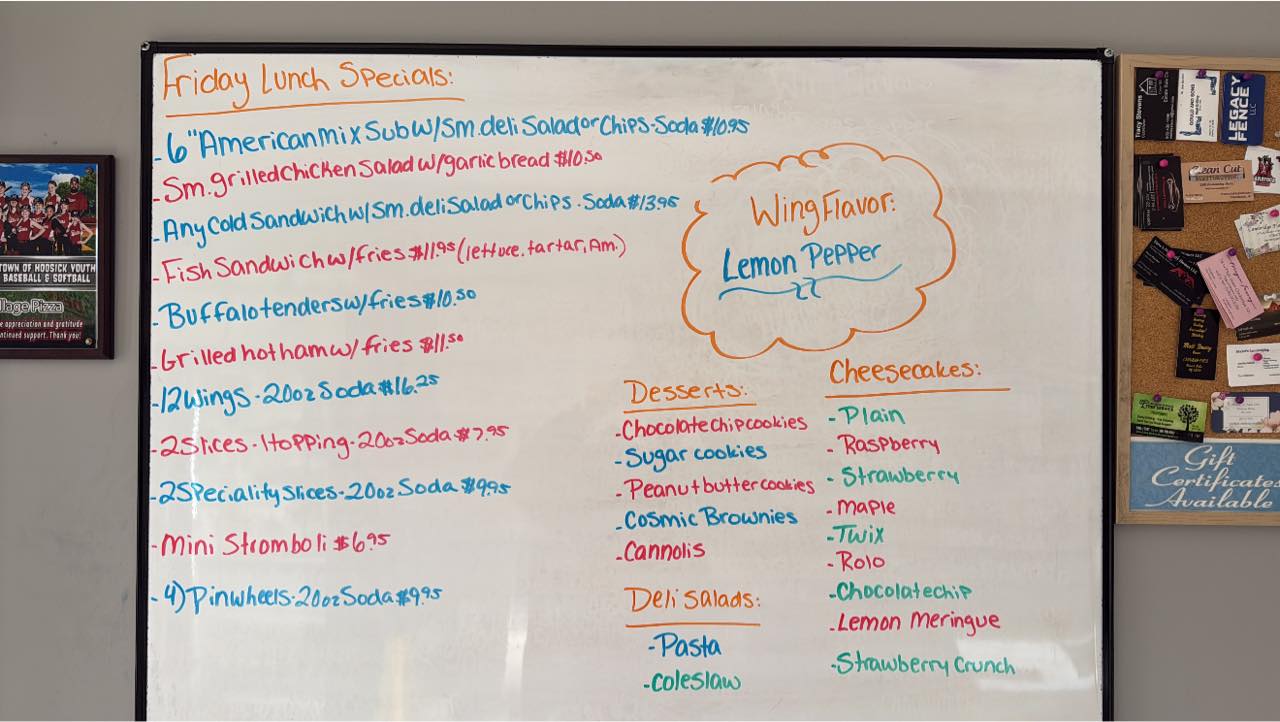 Friday Lunch Specials:
- 6" American Mix Sub w/ Sm. deli Salad or Chips - Soda $10.95
- Sm. grilled Chicken Salad w/ garlic bread $10.50
- Any Cold Sandwich w/ Sm. deli Salad or Chips - Soda $13.95
- Fish Sandwich w/ fries $11.95 (lettuce, tartar, Am.)
- Buffalo tenders w/ fries $10.50
- Grilled hot ham w/ fries $11.50
- 12 Wings - 20oz Soda $16.25
- 2 Slices - 1 topping - 20oz Soda $7.95
- 2 Speciality Slices - 20oz Soda $9.95
- Mini Stromboli $6.95
- 4) Pinwheels - 20oz Soda $9.95
Wing Flavor:
Lemon Pepper
Desserts:
- Chocolate chip cookies
- Sugar cookies
- Peanut butter cookies
- Cosmic Brownies
- Cannolis
Deli Salads:
- Pasta
- Coleslaw
Cheesecakes:
- Plain
- Raspberry
- Strawberry
- Maple
- Twix
- Rolo
- Chocolate chip
- Lemon Meringue
- Strawberry Crunch
TOWN OF HOOSICK YOUTH
BASEBALL & SOFTBALL
llage Pizza
e appreciation and gratitude
ntinued support. Thank you!
Tracy Stevens
LEGACY
FENCE
LLC
ean Cut
Gift
Certificates
Available